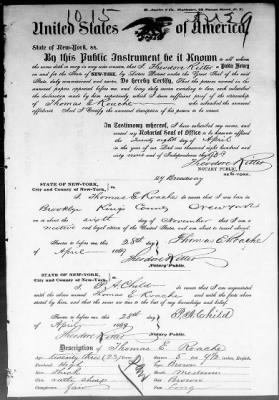 United States of America
State of New-York, ss.
By this Public Instrument be it Known to all whom
the same doth or may in any wise concern, that I, Theodore Ritter a Public Notary
in and for the State of NEW-YORK, by Letters Patent under the Great Seal of the said
State duly commissioned and sworn, Do hereby Certify, that the person named in the
annexed papers appeared before me and being duly sworn according to law, and
subscribed
the declaration sworn to by him respectively, which is then sufficient proof of the citizenship
of Thomas E Roache who subscribed the annexed
affidavit. And I Certify that the annexed description of his person is
In Testimony whereof, I have subscribed my name, and
caused my Notarial Seal of Office to be hereunto affixed
the twenty eighth day of April
in the year of our Lord one thousand eight hundred and
sixty nine and of Independence the 93d
Theodore Ritter
NOTARY PUBLIC
NEW-YORK.
24 Broadway
STATE OF NEW-YORK,
City and County of New-York, ss.
I Thomas E Roache do swear that I was born in
Brooklyn Kings County New York
on or about the sixth day of November that I am a
native and loyal citizen of the United States, and am about to travel abroad.
Sworn to before me, this 28th day
of April 1869
Thomas E Roache
Theodore Ritter
Notary Public.
STATE OF NEW-YORK,
City and County of New-York, ss.
I, Child do swear that I am acquainted
with the above named Thomas E Roache and with the facts above
stated by him, and that the same are true to the best of my knowledge and belief.
Sworn to before me, this 28th day
of April 1869
Child
Theodore Ritter
Notary Public.
Description of Thomas E. Roache
Age: twenty three (23) years
Stature: 5 feet
Forehead: High
Eyes: Brown
Nose: thick
Mouth: medium
Chin: rather sharp
Hair: Brown
Complexion: fair
Face: Long